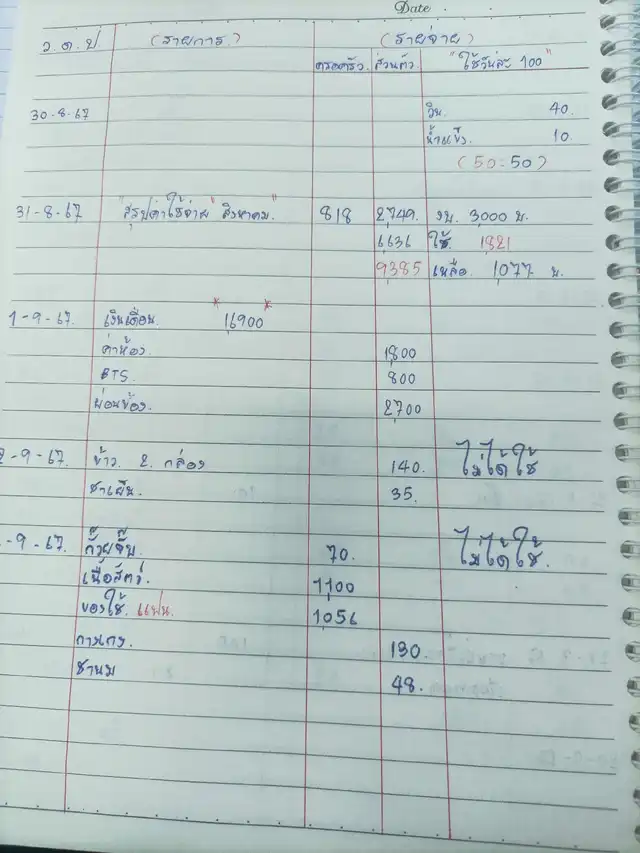 Date
ว ด ป. (รายการ.) (รายจ่าย)
ครอบครัว. ส่วนตัว "ใช้วันละ 100"
30-8-67 วิน. 40.
น้ำแข็ง. 10.
(50-50)
31-8-67 "สรุปค่าใช้จ่าย" สิงหาคม." 818 2,749. งบ. 3,000 บ.
6,636 ใช้. 1,821
9,385 เหลือ. 1,077 บ.
1-9-67. เงินเดือน. *16,900*
ค่าห้อง. 1,800
BTS. 800
ผ่อนของ. 2,700
2-9-67. ข้าว. 2. กล่อง 140. ไม่ได้ใช้
ชาเย็น. 35.
-9-67. ก๊วยจั๊บ. 70. ไม่ได้ใช้.
เนื้อสัตว์. 1,100
ของใช้. แฟน. 1,056
กางเกง. 130.
ชานม 48.